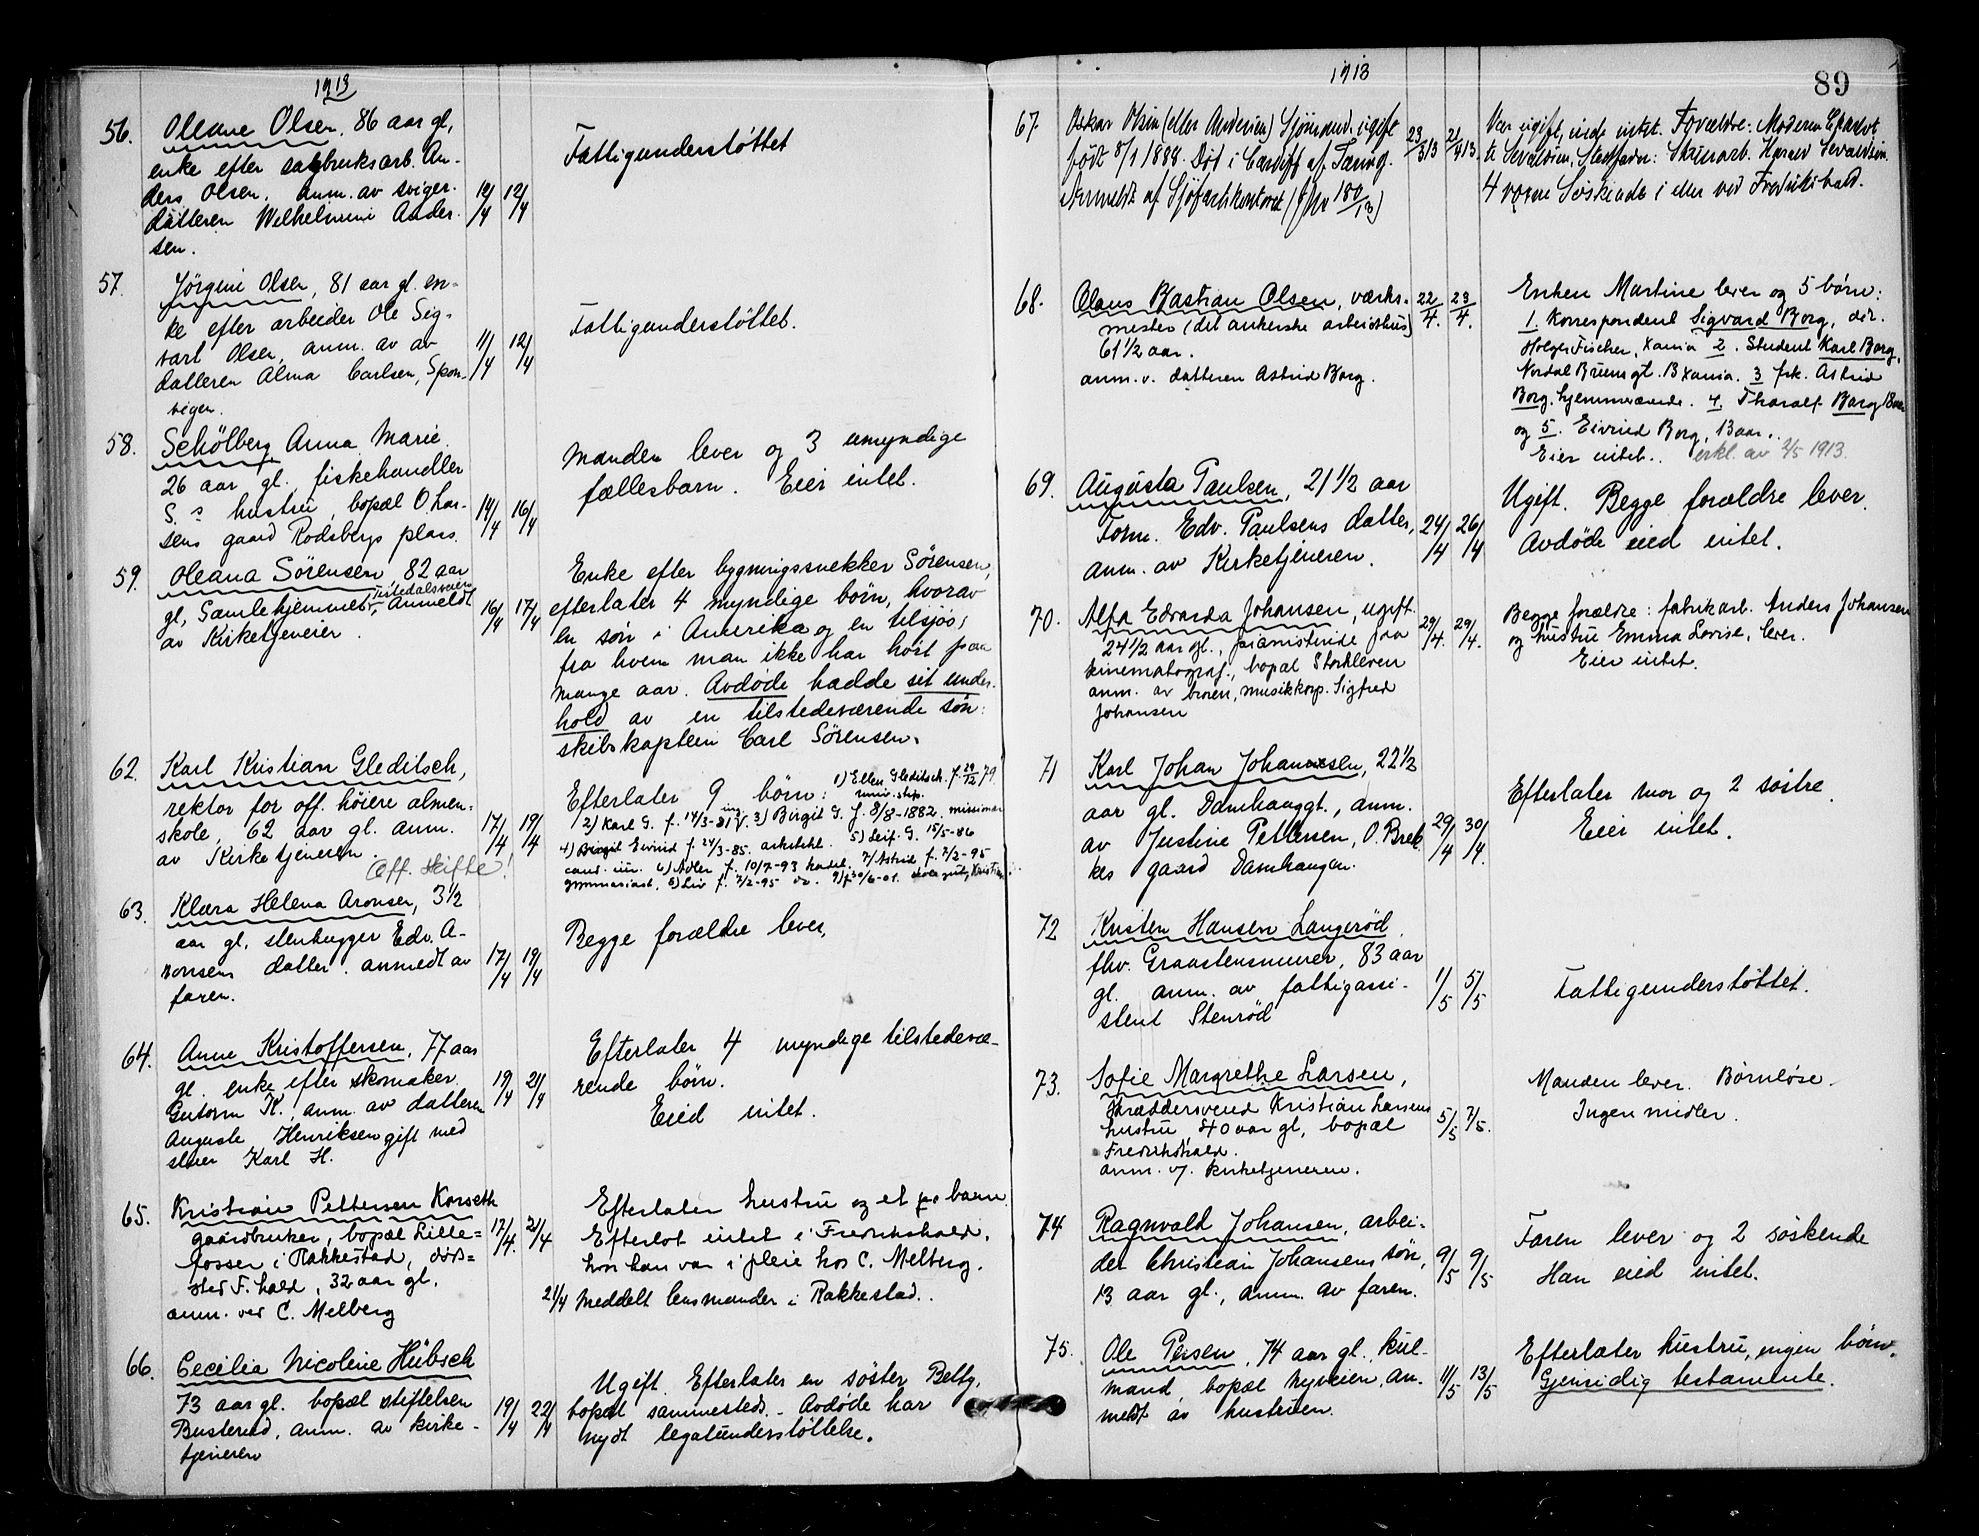 1913
56. Oleane Olsen, 86 aar gl,
enke efter sagbruksarb. An-
ders Olsen, anm. av sviger-
datteren Wilhelmine Ander-
sen.
10/4 12/4
Fattigunderstøttet
57. Jørgine Olsen, 81 aar gl. en-
ke efter arbeider Ole Sig-
vart Olsen, anm. av
datteren Alma Carlsen, Spon-
vigen.
11/4 12/4
Fattigunderstøttet.
58. Schølberg Anna Marie
26 aar gl. fiskehandler
S. s hustru, bopæl O. Lar-
sens gaard Rødsbergs plass.
14/4 16/4
Manden lever og 3 umyndige
fællesbarn. Eier intet.
59. Oleana Sørensen, 82 aar
gl, Samlehjemmet, Tistedalsveien, Anmeldt
av Kirketjeneren.
16/4 17/4
Enke efter bygningssnekker Sørensen,
efterlater 4 myndige børn, hvorav
en søn i Amerika og en tilsjøs,
fra hvem man ikke har hørt paa
mange aar. Avdøde hadde sit under-
hold av en tilstedeværende søn:
skibskaptein Carl Sørensen.
62. Karl Kristian Gleditsch,
rektor for off. høiere almen-
skole, 62 aar gl. anm.
av Kirketjeneren.
Off. Skifte!
17/4 19/4
Efterlater 9 børn: 1) Ellen Gleditsch. f. 29/12 79.
univ. stip.
2) Karl G. f. 14/3-81 ing. 3) Birgit G. f. 8/8-1882. missionær
4) Eivind f. 24/3-85. arkitekt. 5) Leif G. 15/5-86
cand. min. 6) Adler f. 10/7-93 kadet. 7) Astrid f. 7/2-95
gymnasiast. 8) Liv f. 7/2-95 do. 9) f 30/6-01. skolegut, Kristian
63. Klara Helena Aronsen, 3½
aar gl, stenhugger Edv. A-
ronsens datter. anmeldt av
faren.
17/4 19/4
Begge forældre lever,
64. Anne Kristoffersen, 77 aar
gl. enke efter skomaker
Gutorm K., anm. av datteren
Auguste Henriksen gift med
Karl H.
19/4 21/4
Efterlater 4 myndige tilstedevæ-
rende børn.
Eied intet.
65. Kristian Pettersen Korseth
gaardbruker, bopæl Lille-
fosser i Rakkestad, døds-
sted F.hald, 32 aar gl.
anm. ved C. Melberg
17/4. 21/4
Efterlater hustru og et barn
Efterlot intet i Fredrikshald,
hvor han var i pleie hos C. Melberg.
21/4 Meddelt lensmanden i Rakkestad.
66. Cecilia Nicoline Hübsch
73 aar gl. bopæl stiftelsen
Busterud, anm. av kirke-
tjeneren
19/4 22/4
Ugift. Efterlater en søster Betty,
bopæl sammesteds. Avdøde har
nydt legatunderstøttelse.
1913
89
67. Oskar Olsen (eller Andersen) Sjømand. ugift
født 8/1 1888. Død i Cardiff af Tæring.
Anmeldt af Sjøfartskontoret (J.Nr 180/13)
23/3 13 21/4 13.
Var ugift, eiede intet. Forældre: Moderen
Sevaldsen, Stedfader: Stenarb. Harald Sevaldsen.
4 voxne Søskende i eller ved Fredrikshald.
68. Olaus Bastian Olsen, værks-
mester (det ankerske arbeidshus)
61½ aar.
anm. v. datteren Astrid Borg.
22/4. 23/4.
Enken Martine lever og 5 børn:
1. Korrespondent Sigvard Borg, adr.
Holger Fischer, Xania 2. Student Karl Borg,
Nordal Bruns gt. 13 Xania. 3 frk. Astrid
Borg. hjemmeværende. 4. Thoralf Borg 18 aar
og 5. Eivind Borg, 13 aar.
Eier intet. erkl. av 2/5 1913.
69. Augusta Paulsen, 21½ aar
Form. Edv. Paulsens datter,
anm. av Kirketjeneren.
24/4 26/4
Ugift. Begge forældre lever.
Avdøde eied intet.
70. Alfa Edvarda Johansen, ugift
24½ aar gl., pianistinde paa
kinematograf, bopæl Storkleven
anm. av broren, musikkorp. Sigfred
Johansen
29/4. 29/4.
Begge forældre: fabrikarb. Anders Johansen
og hustru Emma Lovise, lever.
Eier intet.
71 Karl Johan Johannesen, 22½
aar gl. Damhauggt., anm.
av Justine Pettersen, O. Brek-
kes gaard Damhaugen.
29/4 30/4.
Efterlater mor og 2 søstre.
Eier intet.
72 Kristen Hansen Langerød
fhv. Graastensmurer, 83 aar
gl. anm. av fattigassi-
stent Stenrød
1/5 5/5
Fattigunderstøttet.
73. Sofie Margrethe Larsen,
skræddersvend Kristian Larsens
hustru 40 aar gl, bopæl
Fredrikshald.
anm. v. kirketjeneren.
5/5 7/5.
Manden lever. Børnløse.
Ingen midler.
74 Ragnvald Johansen, arbei-
der Christian Johansens søn,
13 aar gl., anm. av faren.
9/5 9/5
Faren lever og 2 søskende
Han eied intet.
75. Ole Persen, 74 aar gl. kul-
mand, bopæl Nyveien, an-
meldt av hustruen.
11/5 13/5
Efterlater hustru, ingen børn.
Gjensidig testamente.